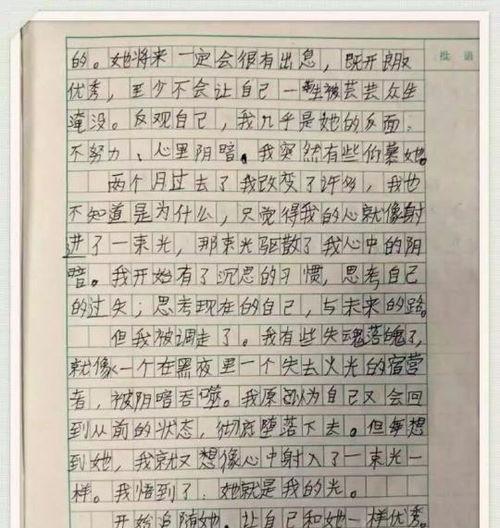 批 语
的。她将来一定会很有出息，既开朗又
优秀，至少不会让自己一生被芸芸众生
淹没。反观自己，我几乎是她的反面：
不努力、心里阴暗。我突然有些仰慕她。
两个月过去了我改变了许多，我也
不知道是为什么，只觉得我的心就像射
进了一束光，那束光驱散了我心中的阴
暗。我开始有了沉思的习惯，思考自己
的过失；思考现在的自己，与未来的路。
但我被调走了。我有些失魂落魄了，
就像一个在黑夜里一个失去火光的宿营
者，被阴暗吞噬。我原以为自己又会回
到从前的状态，彻底堕落下去。但每想
到她，我就又想像心中射入了一束光一
样。我悟到了：她就是我的光。
开始追随她。让自己和她一样优秀